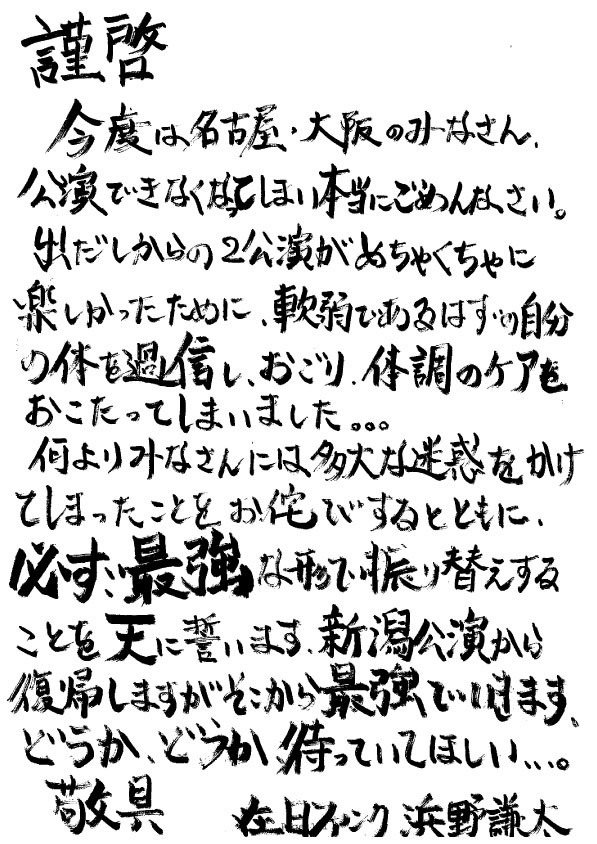 謹啓
今度は名古屋・大阪のみなさん、
公演できなくなってしまい本当にごめんなさい。
出だしからの2公演がめちゃくちゃに
楽しかったために、軟弱であるはずの自分
の体を過信し、おごり、体調のケアを
おこたってしまいました。。。
何よりみなさんには多大な迷惑をかけ
てしまったことをお侘びするとともに、
必ず、最強な形で振り替えする
ことを天に誓います、新潟公演から
復帰しますがそこから最強でいきます、
どうか、どうか、待っていてほしい...。
敬具
在日ファンク 浜野謙太